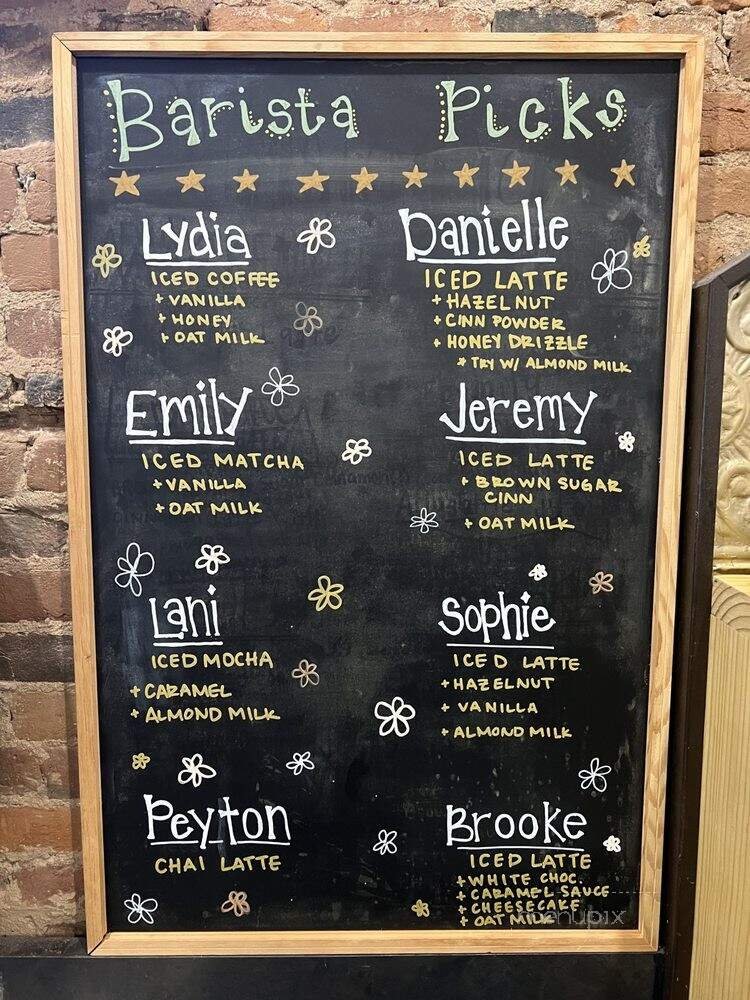 Barista Picks
Lydia
ICED COFFEE
+ VANILLA
+ HONEY
+ OAT MILK
Danielle
ICED LATTE
+ HAZELNUT
+ CINN POWDER
+ HONEY DRIZZLE
* TRY W/ ALMOND MILK
Emily
ICED MATCHA
+ VANILLA
+ OAT MILK
Jeremy
ICED LATTE
+ BROWN SUGAR
CINN
+ OAT MILK
Lani
ICED MOCHA
+ CARAMEL
+ ALMOND MILK
Sophie
ICED LATTE
+ HAZELNUT
+ VANILLA
+ ALMOND MILK
Peyton
CHAI LATTE
Brooke
ICED LATTE
+ WHITE CHOC.
+ CARAMEL SAUCE
+ CHEESECAKE
+ OAT MILK
menupix